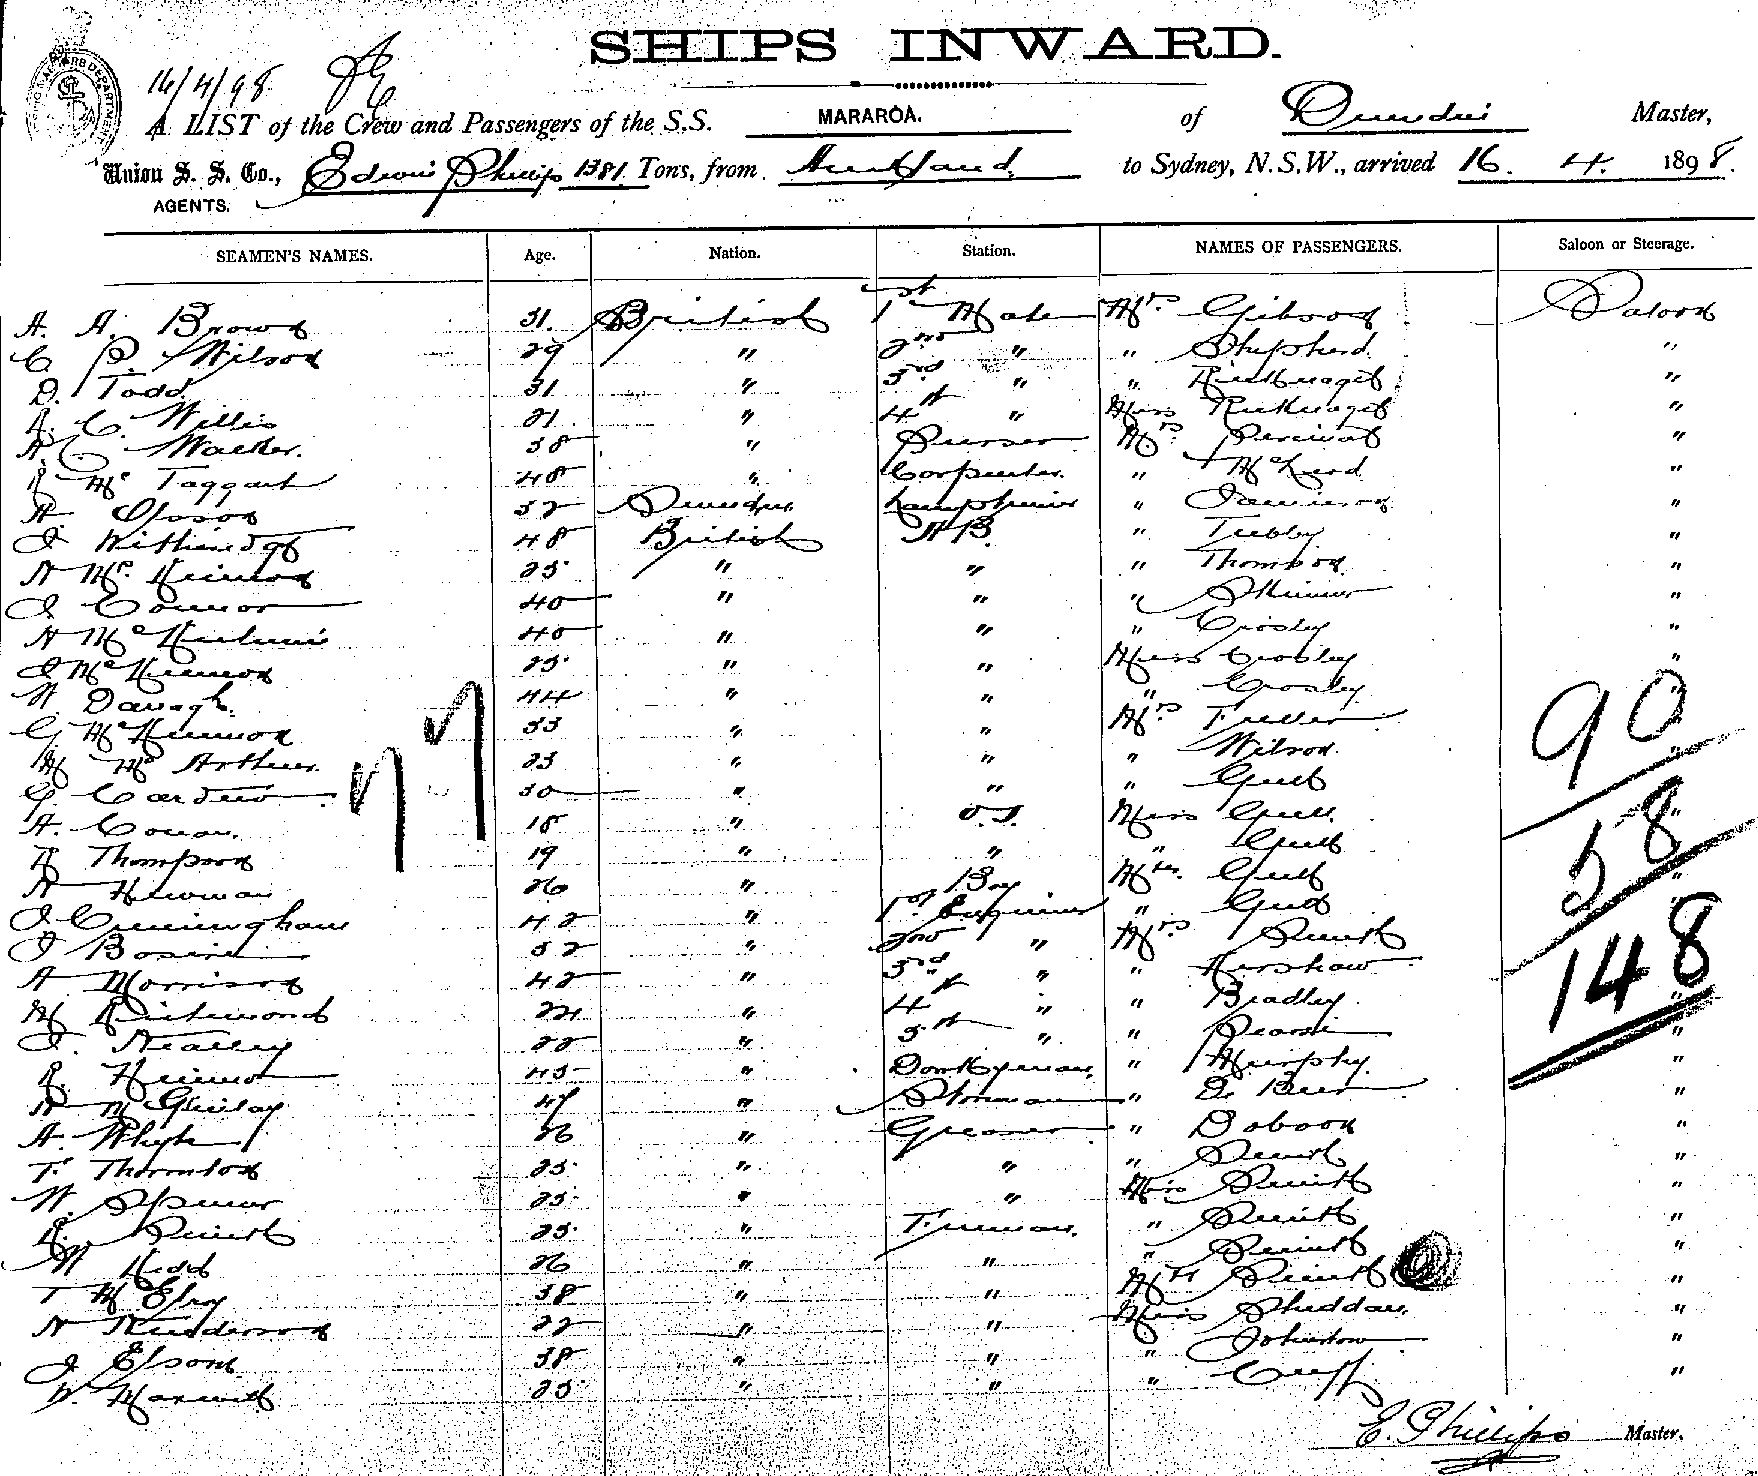 SHIPS INWARD.
16/4/98
A LIST of the Crew and Passengers of the S.S. MARAROA. of Dunedin Master,
Union S. S. Co., Edwin Phillips 1381 Tons, from Auckland to Sydney, N.S.W., arrived 16. 4. 1898.
AGENTS.
SEAMEN'S NAMES. Age. Nation. Station. NAMES OF PASSENGERS. Saloon or Steerage.
A. A. Brown 31. British 1st Mate Mrs Gibson Saloon
C P. Wilson 29 " 2nd " " Shepherd "
D. Todd 31 " 3rd " "
R. C. Willis 21 " 4th " Miss "
A C Walker. 38 " Purser Mrs Percival "
R Mc Taggart 48 " Carpenter. " "
A Olsson 32 Lamptrimer " Jamieson "
J 48 British AB. " Tubby "
N Mc Kinnon 25 " " " Thomson "
J Connor 40 " " " Skinner "
A Mc 40 " " " Crosby "
J Mc Kinnon 25 " " Miss Crosby "
W. Darragh. 44 " " " Crosby "
G McKinnon 33 " " Mrs Fuller
M Mc Arthur. 23 " " " Wilson.
G. Cardew 30 " " "
A. Conan. 18 " O.S. Miss
R Thompson 19 " " "
A Newman 26 " Boy
J Cunningham 42 " 1st Engineer "
J 32 " 2nd " Mrs Smith
A Morrison 42 " 3rd " " Kershaw
M Richmond 24 " 4th " " Bradley
J. 22 " 5th " " Pearse "
R. 45 " Donkeyman. " Murphy. "
A Mc 47 " Storeman " De Beer "
A. Whyte 26 " Greaser " Dobson "
T. Thornton 25 " " " Smith "
W. Spencer 25 " " Miss Smith "
R. Smith 25 " Fireman. " Smith "
W Kidd 26 " " " Smith "
T Mc Elroy 38 " " Smith "
N Henderson 22 " " Miss Sheddan. "
J Elsom 38 " " " Johnston "
W. Maxwell 25 " " " Cuff "
77
90
58
148
E. Phillips Master.